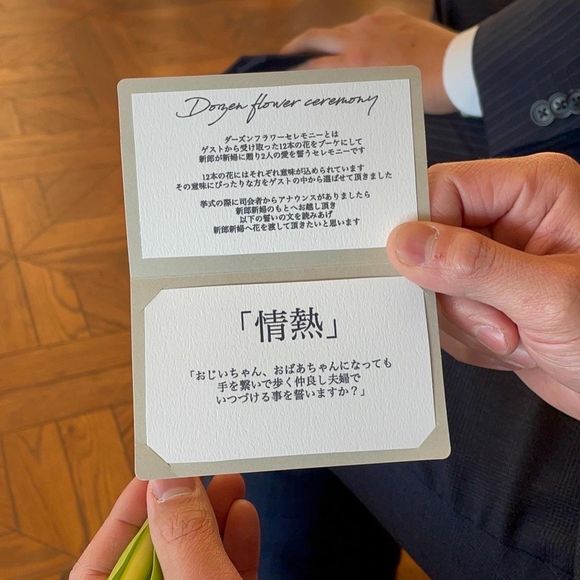 Dozen flower ceremony
ダーズンフラワーセレモニーとは
ゲストから受け取った12本の花をブーケにして
新郎が新婦に贈り2人の愛を誓うセレモニーです
12本の花にはそれぞれ意味が込められています
その意味にぴったりな方をゲストの中から選ばせて頂きました
挙式の際に司会者からアナウンスがありましたら
新郎新婦のもとへお越し頂き
以下の誓いの文を読みあげ
新郎新婦へ花を渡して頂きたいと思います
「情熱」
「おじいちゃん、おばあちゃんになっても
手を繋いで歩く仲良し夫婦で
いつづける事を誓いますか？」